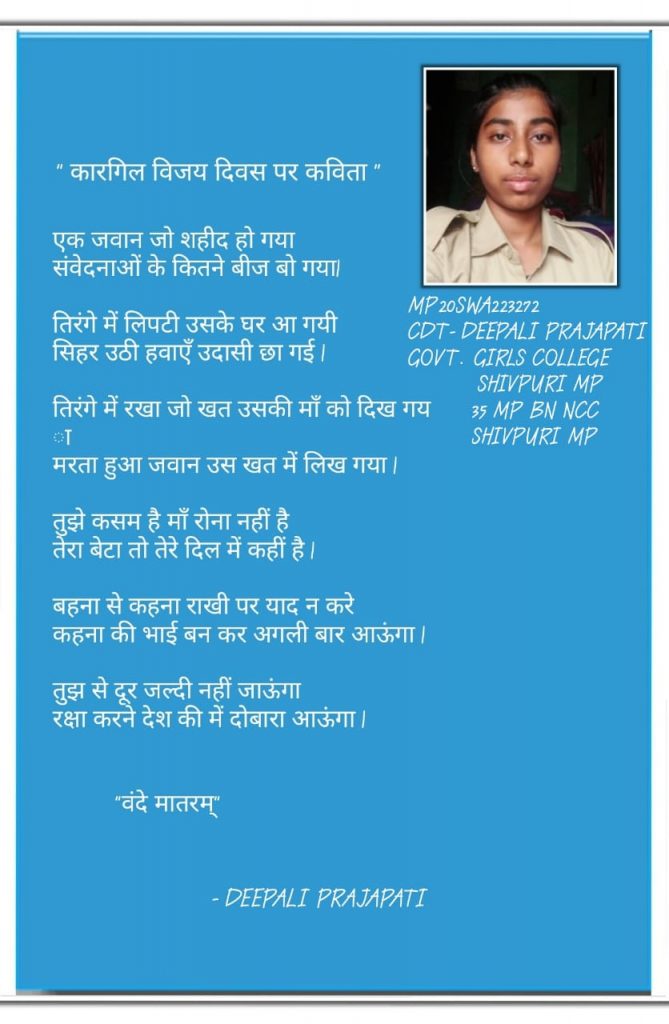 “ कारगिल विजय दिवस पर कविता ”
एक जवान जो शहीद हो गया
संवेदनाओं के कितने बीज बो गया|
तिरंगे में लिपटी उसके घर आ गयी
सिहर उठी हवाएँ उदासी छा गई |
तिरंगे में रखा जो खत उसकी माँ को दिख गय
ा
मरता हुआ जवान उस खत में लिख गया |
तुझे कसम है माँ रोना नहीं है
तेरा बेटा तो तेरे दिल में कहीं है |
बहना से कहना राखी पर याद न करे
कहना की भाई बन कर अगली बार आऊंगा |
तुझ से दूर जल्दी नहीं जाऊंगा
रक्षा करने देश की में दोबारा आऊंगा |
“वंदे मातरम्”
- DEEPALI PRAJAPATI
MP20SWA223272
CDT- DEEPALI PRAJAPATI
GOVT. GIRLS COLLEGE
SHIVPURI MP
35 MP BN NCC
SHIVPURI MP